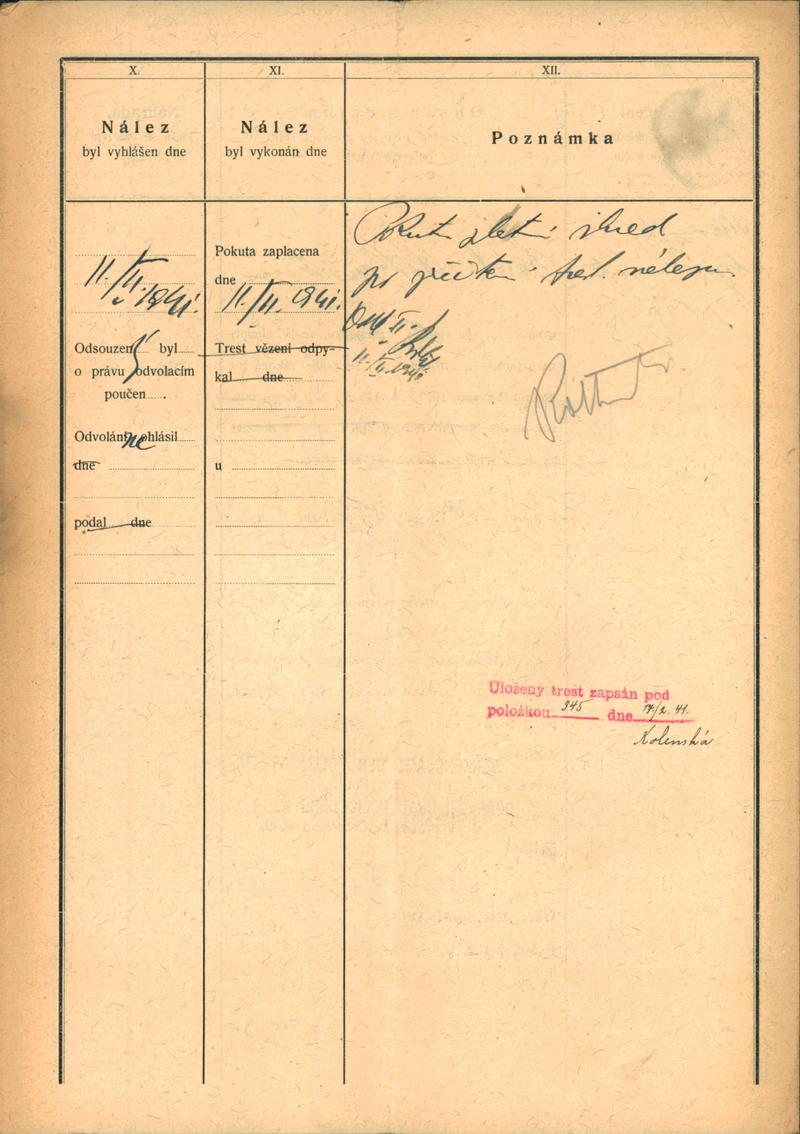 X.
Nález
byl vyhlášen dne
11./II. 1941.
Odsouzený byl
o právu odvolacím
poučen
Odvolání neohlásil
dne
podal dne
XI.
Nález
byl vykonán dne
Pokuta zaplacena
dne
11./II. 1941.
Trest vězení odpy-
kal dne
u
XII.
Poznámka
Pokutu ihned
po trest. nálezu.
Odd. II.
11./II. 1941
Uložený trest zapsán pod
položkou 345 dne 17/2. 41.
Kolenská